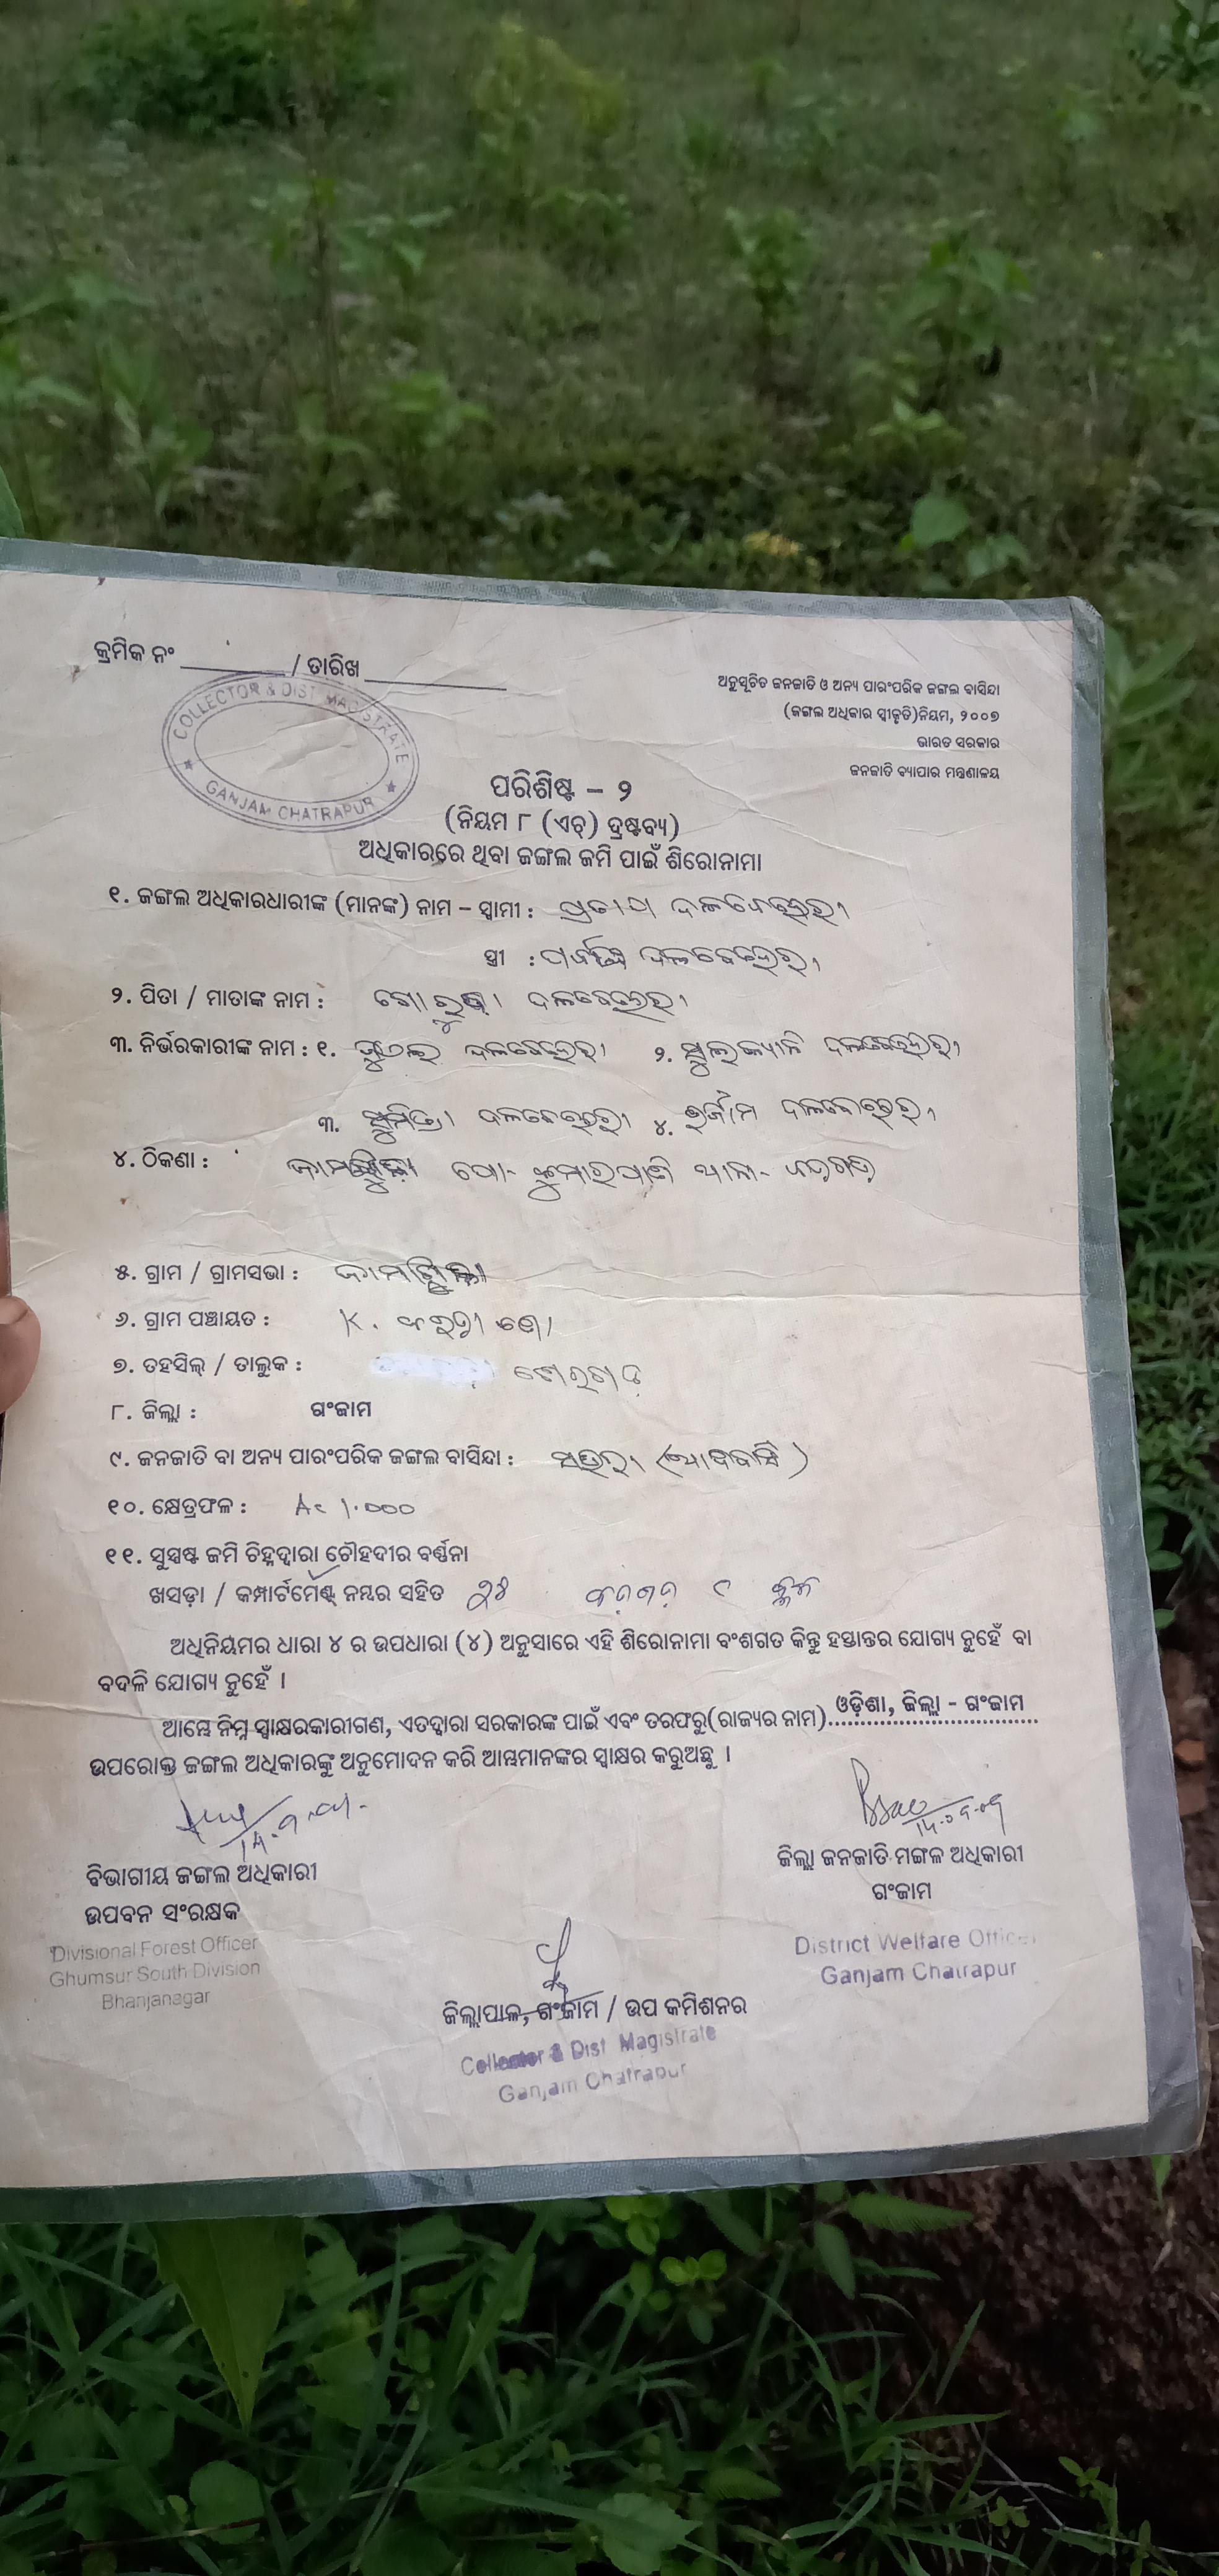 କ୍ରମିକ ନଂ / ତାରିଖ
COLLECTOR & DIST. MAGISTRATE
GANJAM CHATRAPUR
ଅନୁସୂଚିତ ଜନଜାତି ଓ ଅନ୍ୟ ପାରଂପରିକ ଜଙ୍ଗଲ ବାସିନ୍ଦା
(ଜଙ୍ଗଲ ଅଧିକାର ସ୍ୱୀକୃତି)ନିୟମ, ୨୦୦୭
ଭାରତ ସରକାର
ଜନଜାତି ବ୍ୟାପାର ମନ୍ତ୍ରଣାଳୟ
ପରିଶିଷ୍ଟ – ୨
(ନିୟମ ୮ (ଏଚ୍) ଦ୍ରଷ୍ଟବ୍ୟ)
ଅଧିକାରରେ ଥିବା ଜଙ୍ଗଲ ଜମି ପାଇଁ ଶିରୋନାମା
୧. ଜଙ୍ଗଲ ଅଧିକାରଧାରୀଙ୍କ (ମାନଙ୍କ) ନାମ – ସ୍ୱାମୀ : ପ୍ରତାପ ଦଳବେହେରା
ସ୍ତ୍ରୀ : ଦଳବେହେରା
୨. ପିତା / ମାତାଙ୍କ ନାମ : ଦଳବେହେରା
୩. ନିର୍ଭରକାରୀଙ୍କ ନାମ : ୧. ଦଳବେହେରା ୨. ଦଳବେହେରା
୩. ସୁମିତ୍ରା ଦଳବେହେରା ୪. ଦଳବେହେରା
୪. ଠିକଣା : ପୋ- ଥାନା-
୫. ଗ୍ରାମ / ଗ୍ରାମସଭା :
୬. ଗ୍ରାମ ପଞ୍ଚାୟତ : K.
୭. ତହସିଲ୍ / ତାଲୁକ : ଶେରଗଡ଼
୮. ଜିଲ୍ଲା : ଗଂଜାମ
୯. ଜନଜାତି ବା ଅନ୍ୟ ପାରଂପରିକ ଜଙ୍ଗଲ ବାସିନ୍ଦା : ସଉରା (ଆଦିବାସି)
୧୦. କ୍ଷେତ୍ରଫଳ : Ac ୧.୦୦୦
୧୧. ସୁସ୍ପଷ୍ଟ ଜମି ଚିହ୍ନଦ୍ୱାରା ଚୌହଦୀର ବର୍ଣ୍ଣନା
ଖସଡ଼ା / କମ୍ପାର୍ଟମେଣ୍ଟ ନମ୍ବର ସହିତ
ଅଧିନିୟମର ଧାରା ୪ ର ଉପଧାରା (୪) ଅନୁସାରେ ଏହି ଶିରୋନାମା ବଂଶଗତ କିନ୍ତୁ ହସ୍ତାନ୍ତର ଯୋଗ୍ୟ ନୁହେଁ ବା
ବଦଳି ଯୋଗ୍ୟ ନୁହେଁ ।
ଆମ୍ଭେ ନିମ୍ନ ସ୍ୱାକ୍ଷରକାରୀଗଣ, ଏତଦ୍ୱାରା ସରକାରଙ୍କ ପାଇଁ ଏବଂ ତରଫରୁ(ରାଜ୍ୟର ନାମ) ଓଡ଼ିଶା, ଜିଲ୍ଲା - ଗଂଜାମ
ଉପରୋକ୍ତ ଜଙ୍ଗଲ ଅଧିକାରଙ୍କୁ ଅନୁମୋଦନ କରି ଆମ୍ଭମାନଙ୍କର ସ୍ୱାକ୍ଷର କରୁଅଛୁ ।
ବିଭାଗୀୟ ଜଙ୍ଗଲ ଅଧିକାରୀ
ଉପବନ ସଂରକ୍ଷକ
Divisional Forest Officer
Ghumsur South Division
Bhanjanagar
ଜିଲ୍ଲା ଜନଜାତି ମଙ୍ଗଳ ଅଧିକାରୀ
ଗଂଜାମ
District Welfare Officer
Ganjam Chatrapur
ଜିଲ୍ଲାପାଳ, ଗଂଜାମ / ଉପ କମିଶନର
Collector & Dist. Magistrate
Ganjam Chatrapur